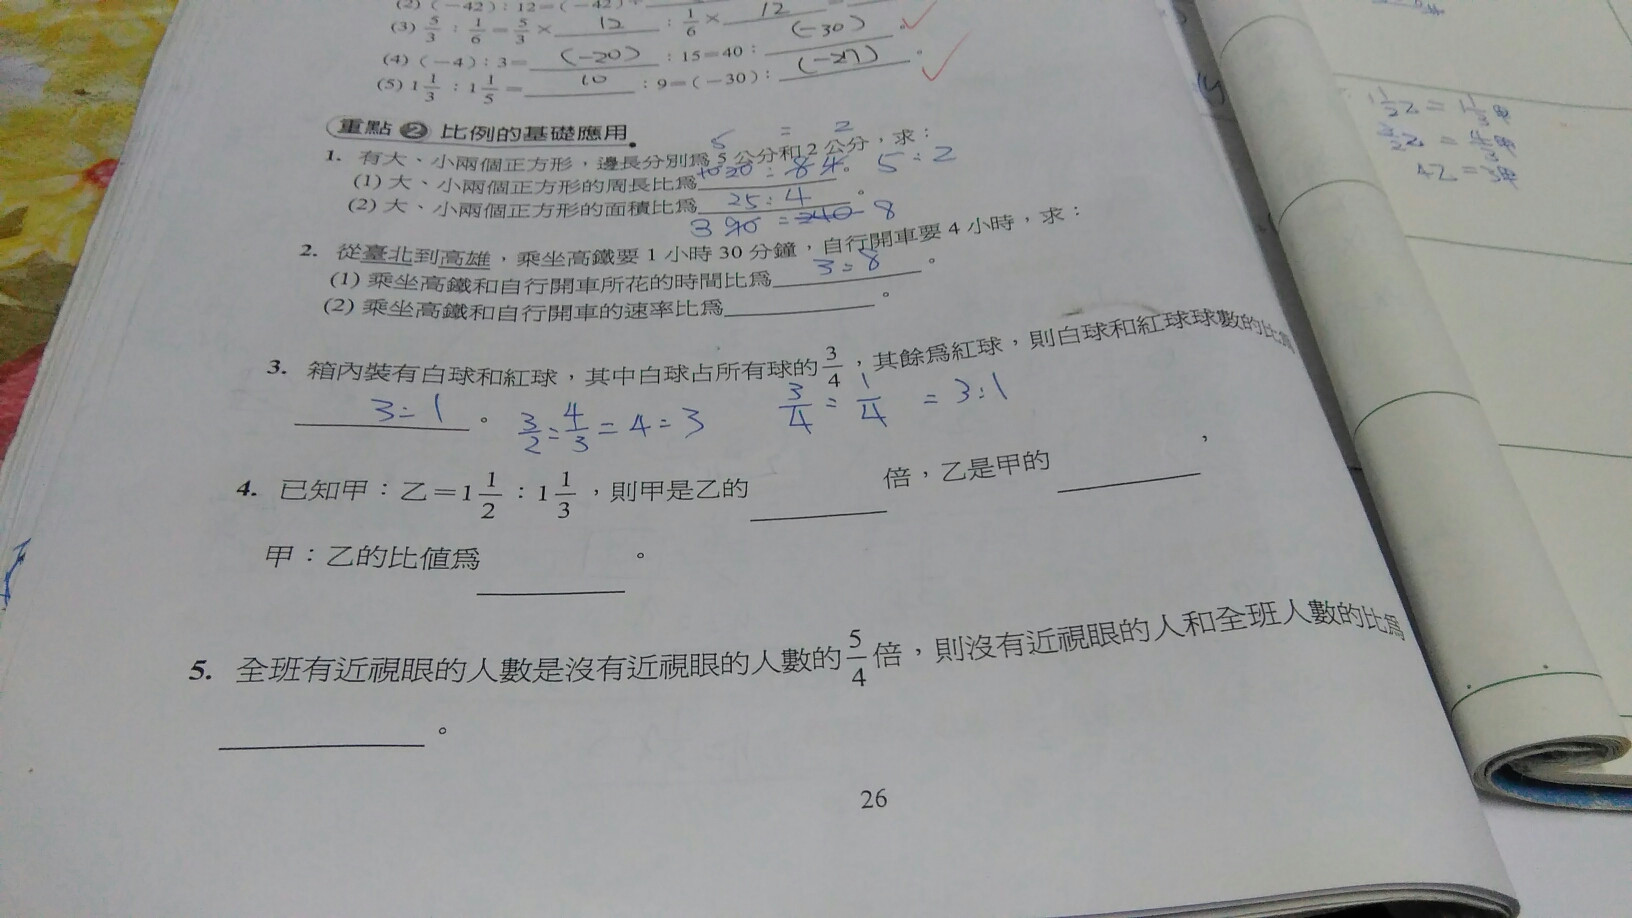 (2) (－42)：12＝(－42)÷
(3) 5/3：1/6＝5/3× 12 ：1/6× 12 ＝
(4) (－4)：3＝ (-20) ：15＝40： (-30) 。
(5) 1 1/3：1 1/5＝ 10 ：9＝(－30)： (-27) 。
重點 2 比例的基礎應用
5 = 2
1. 有大、小兩個正方形，邊長分別為 5 公分和 2 公分，求：
(1) 大、小兩個正方形的周長比為 20 : 8 。 5:2
(2) 大、小兩個正方形的面積比為 25:4 。
3 90 = 240 8
2. 從臺北到高雄，乘坐高鐵要 1 小時 30 分鐘，自行開車要 4 小時，求：
(1) 乘坐高鐵和自行開車所花的時間比為 3:8 。
(2) 乘坐高鐵和自行開車的速率比為 。
3. 箱內裝有白球和紅球，其中白球占所有球的 3/4，其餘為紅球，則白球和紅球球數的比為
3:1 。 3/2:4/3=4:3 3/4:1/4=3:1
4. 已知甲：乙＝1 1/2：1 1/3，則甲是乙的 倍，乙是甲的 ，
甲：乙的比值為 。
5. 全班有近視眼的人數是沒有近視眼的人數的 5/4 倍，則沒有近視眼的人和全班人數的比為
。
26
1 1/2乙=1 1/3甲
3/2乙=4/3甲